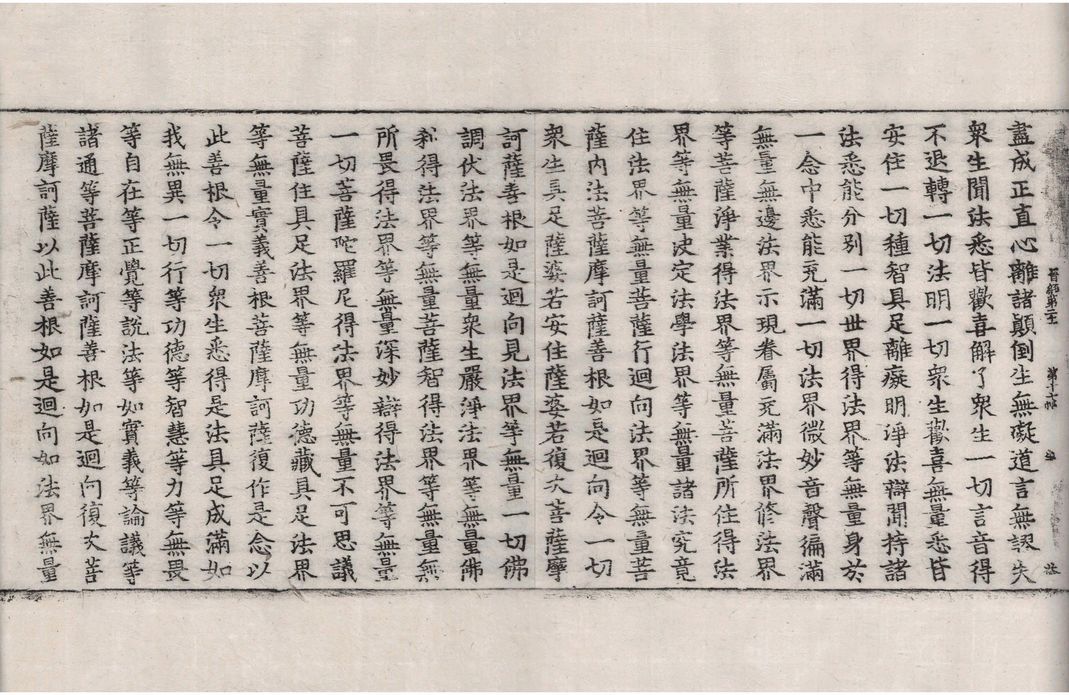 盡成正直心離諸顛倒生無礙道言無謬失
衆生聞法悉皆歡喜解了衆生一切言音得
不退轉一切法明一切衆生歡喜無量悉皆
安住一切種智具足離癡明淨法辯聞持諸
法悉能分別一切世界得法界等無量身於
一念中悉能充滿一切法界微妙音聲徧滿
無量無邊法界示現眷屬充滿法界修法界
等菩薩淨業得法界等無量菩薩所住得法
界等無量決定法學法界等無量諸法究竟
住法界等無量菩薩行迴向法界等無量菩
薩內法菩薩摩訶薩善根如是迴向令一切
衆生具足薩婆若安住薩婆若復次菩薩摩
訶薩善根如是迴向見法界等無量一切佛
調伏法界等無量衆生嚴淨法界等無量佛
刹得法界等無量菩薩智得法界等無量無
所畏得法界等無量深妙辯得法界等無量
一切菩薩陀羅尼得法界等無量不可思議
菩薩住具足法界等無量功德藏具足法界
等無量實義善根菩薩摩訶薩復作是念以
此善根令一切衆生悉得是法具足成滿如
我無異一切行等功德等智慧等力等無畏
等自在等正覺等說法等如實義等論議等
諸通等菩薩摩訶薩善根如是迴向復次菩
薩摩訶薩以此善根如是迴向如法界無量